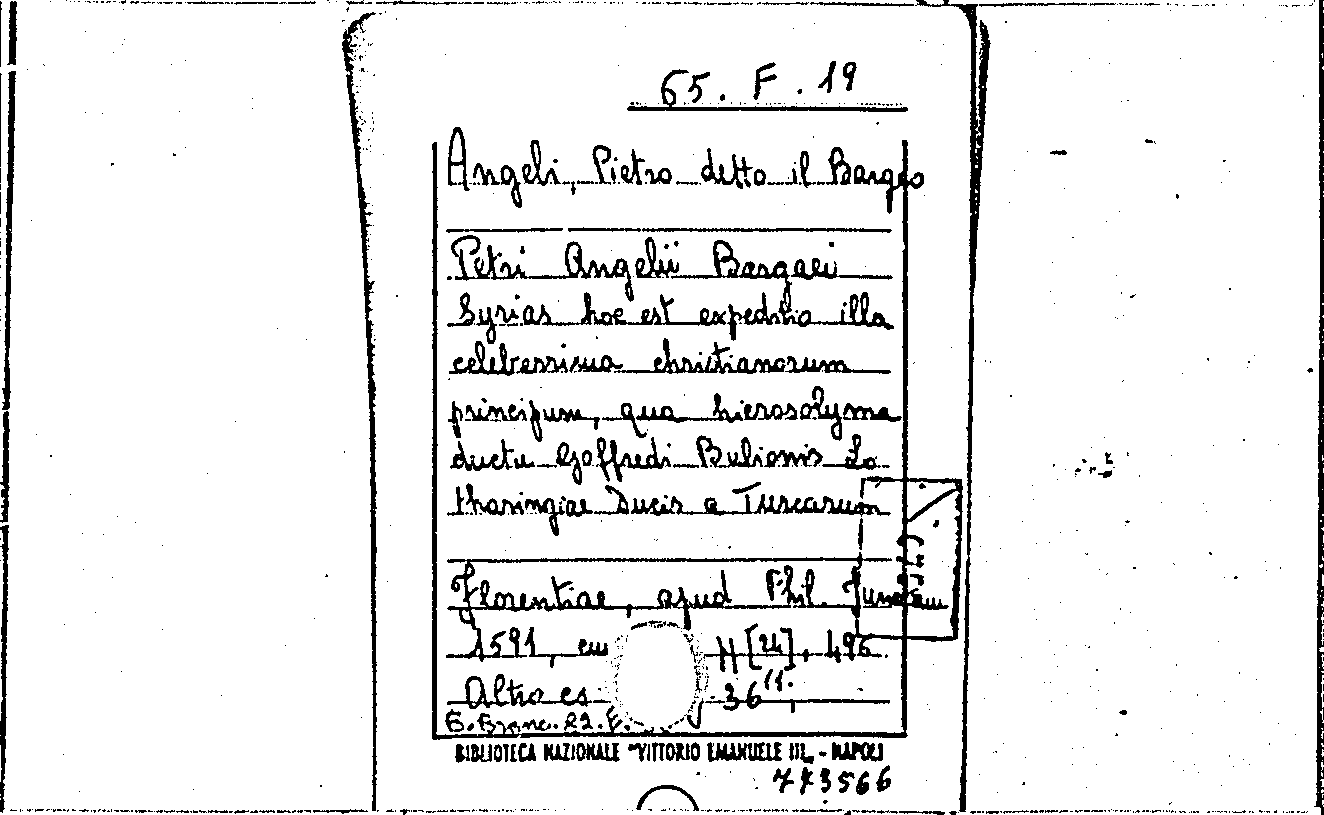 65. F. 19
Angeli, Pietro detto il Bargeo
Petri Angelii Bargaei
Syrias hoc est expeditio illa
celeberrima christianorum
principum, qua hierosolyma
ductu Goffredi Bulionis Lo
tharingiae Ducis a Turcarum
Florentiae, apud Phil. Junctam
1591, cm [24], 496
Altro es 36
B. Branc. 22. E.
BIBLIOTECA NAZIONALE "VITTORIO EMANUELE III„ - NAPOLI
773566